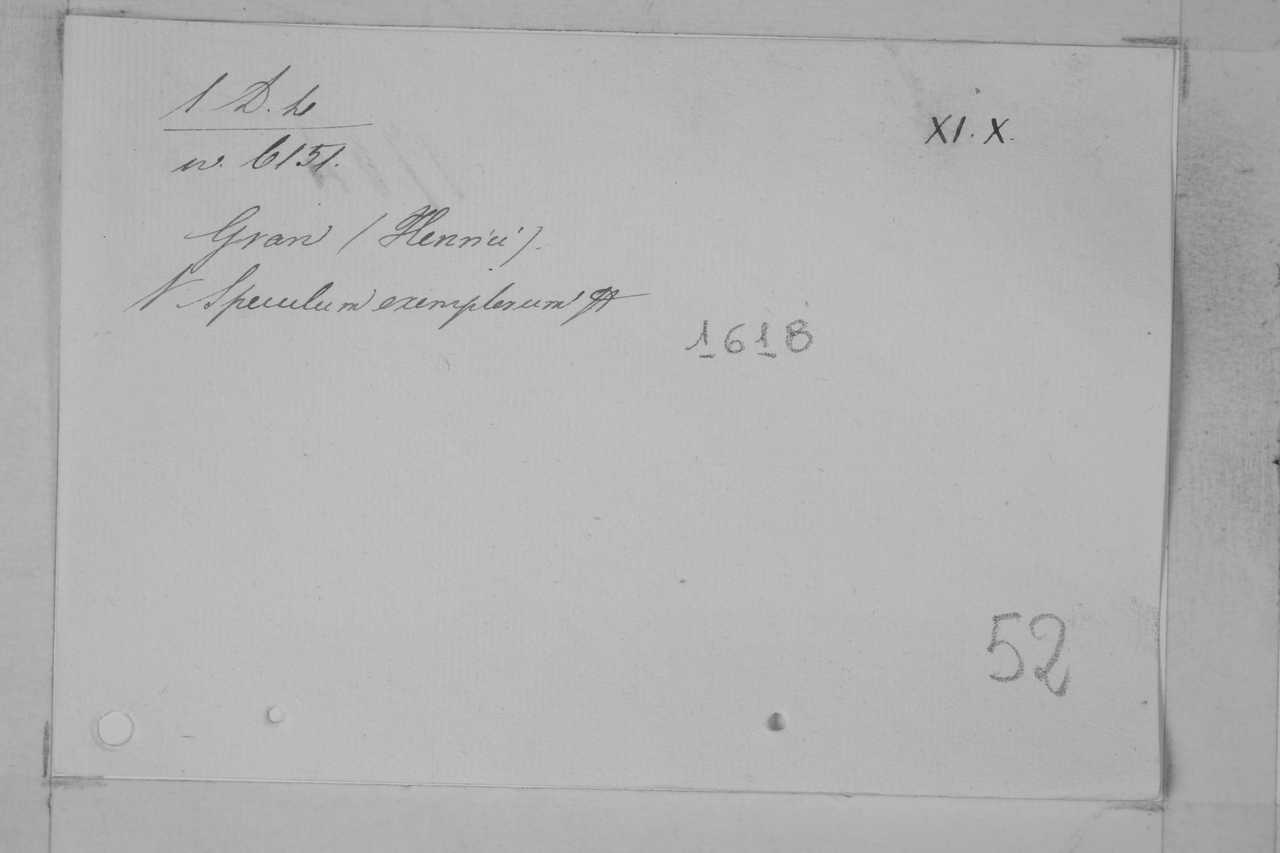 1. D. h
XI. X.
w. 6151.
Gran (Henrici).
Speculum exemplorum
1618
52